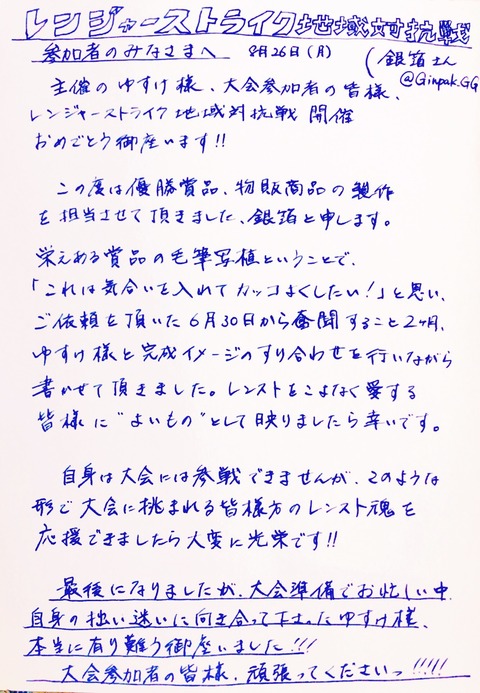 レンジャーストライク地域対抗戦
参加者のみなさまへ 8月26日(月)
(銀箔さん
@Ginpak.GG
主催のゆすけ様、大会参加者の皆様、
レンジャーストライク地域対抗戦 開催
おめでとう御座います!!
この度は優勝賞品、物販商品の製作
を担当させて頂きました、銀箔と申します。
栄えある賞品の毛筆写植ということで、
「これは気合いを入れてカッコよくしたい!」と思い、
ご依頼を頂いた6月30日から奮闘すること2ヶ月、
ゆすけ様と完成イメージのすり合わせを行いながら
書かせて頂きました。レンストをこよなく愛する
皆様に"よいもの"として映りましたら幸いです。
自身は大会には参戦できませんが、このような
形で大会に挑まれる皆様方のレンスト魂を
応援できましたら大変に光栄です!!
最後になりましたが、大会準備でお忙しい中、
自身の拙い迷いに向き合って下さったゆすけ様、
本当に有り難う御座いました!!!
大会参加者の皆様、頑張ってくださいっ!!!!!